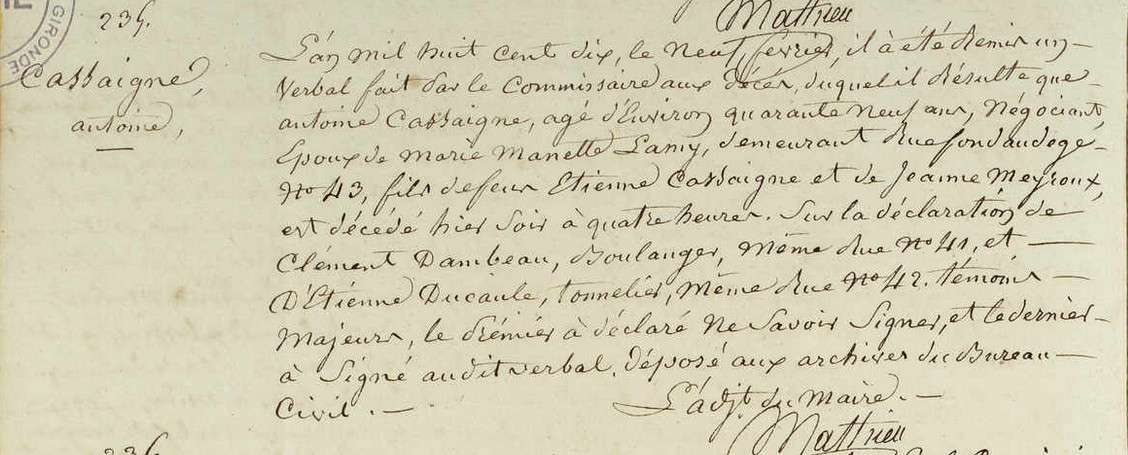 Mathieu
235.
GIRONDE
Cassaigne,
antoine,
L'an mil huit cent dix, le neuf février, il à été remis un
Verbal fait par le Commissaire aux décès, duquel il résulte que
antoine Cassaigne, agé d'Environ quarante Neuf ans, Négociant,
Epoux de Marie Manette Lamy, demeurant Rue fondaudege
No 43, fils de feu Etienne Cassaigne et de Jeanne Meyroux,
est décédé hier soir à quatre heures. Sur la déclaration de
Clément Dambeau, Boulanger, même Rue No 41, et
D'Etienne Ducaule, tonnelier, même Rue No 42. témoins
Majeurs, le prémier à déclaré Ne Savoir Signer, et le dernier
à Signé audit verbal, déposé aux archives du Bureau
Civil.
L'adjt. du Maire.
Mathieu
236